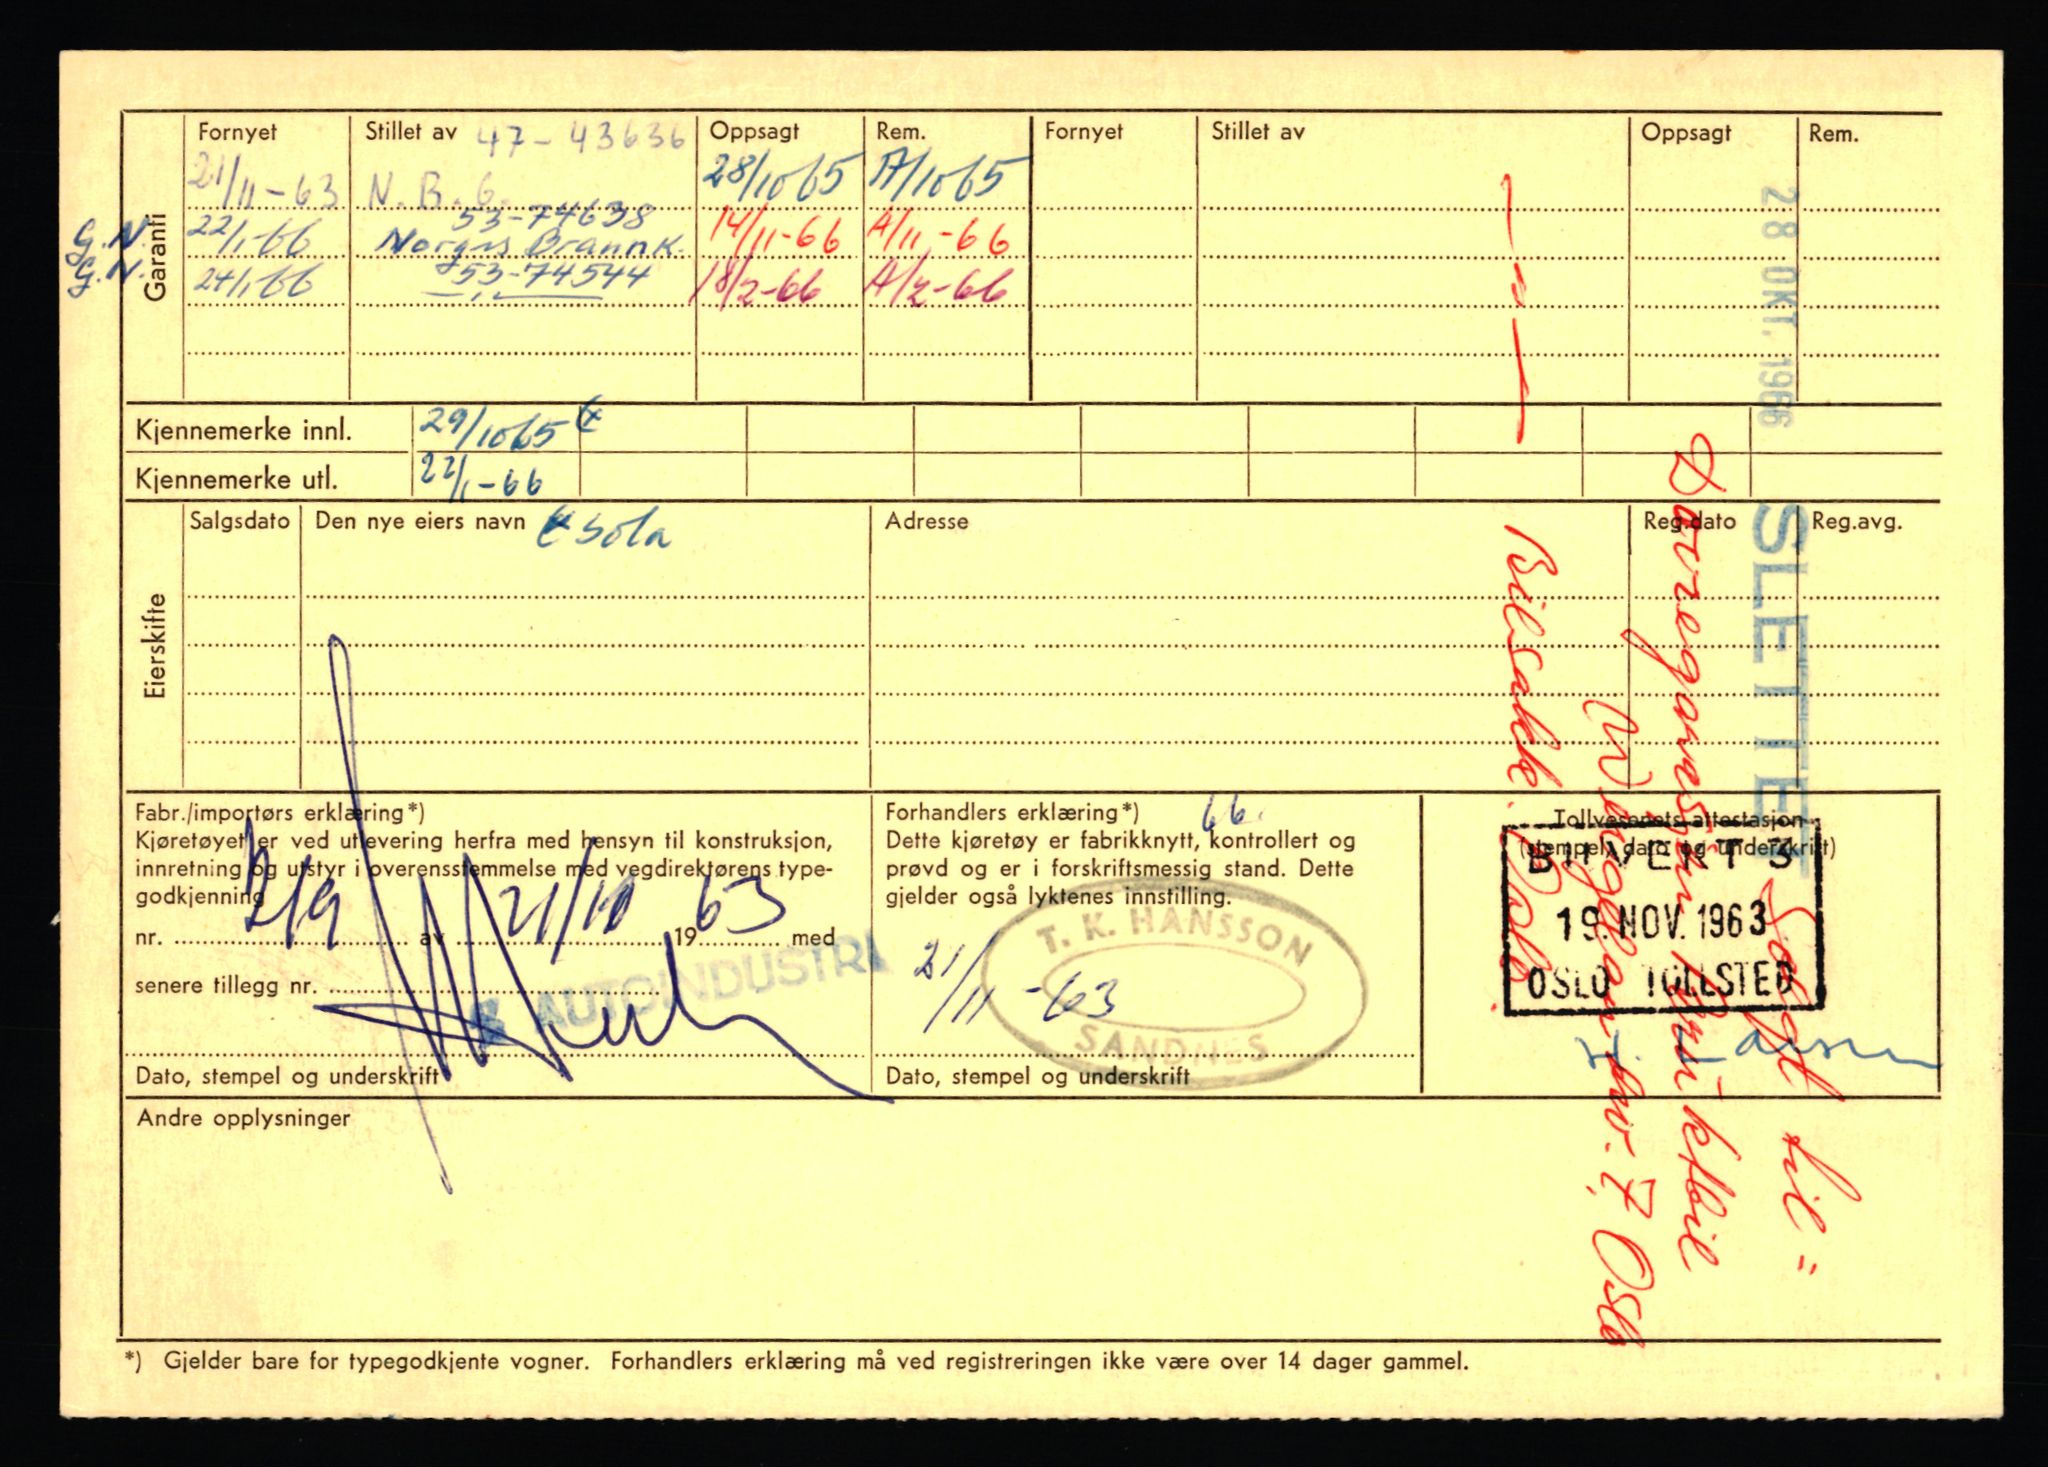 Garanti
Fornyet Stillet av 47-43636 Oppsagt Rem. Fornyet Stillet av Oppsagt Rem.
21/11-63 N.B.G. 28/10 65 A/10 65
53-74638
G.N. 22/1-66 Norges Brannk. 14/11-66 A/11-66
G.N. 24/1-66 53-74544 18/2-66 A/2-66
28 OKT. 1966
Kjennemerke innl. 29/10 65
Kjennemerke utl. 22/1-66
Eierskifte
Salgsdato Den nye eiers navn Adresse Reg.dato Reg.avg.
Sola
SLETTET
Solgt til =
Norveganski
Wergelandsv. 7 Oslo
Bilsakk. Oslo
Fabr./importørs erklæring*)
Kjøretøyet er ved utlevering herfra med hensyn til konstruksjon,
innretning og utstyr i overensstemmelse med vegdirektørens type-
godkjenning
nr. 219 av 21/10 1963 med
senere tillegg nr.
AUTOINDUSTRI
Dato, stempel og underskrift
Forhandlers erklæring*) 66.
Dette kjøretøy er fabrikknytt, kontrollert og
prøvd og er i forskriftsmessig stand. Dette
gjelder også lyktenes innstilling.
T. K. HANSSON
SANDNES
21/11-63
Dato, stempel og underskrift
Tollvesenets attestasjon
(stempel, dato og underskrift)
BILVEKT 3
19. NOV. 1963
OSLO TOLLSTED
Andre opplysninger
*) Gjelder bare for typegodkjente vogner. Forhandlers erklæring må ved registreringen ikke være over 14 dager gammel.